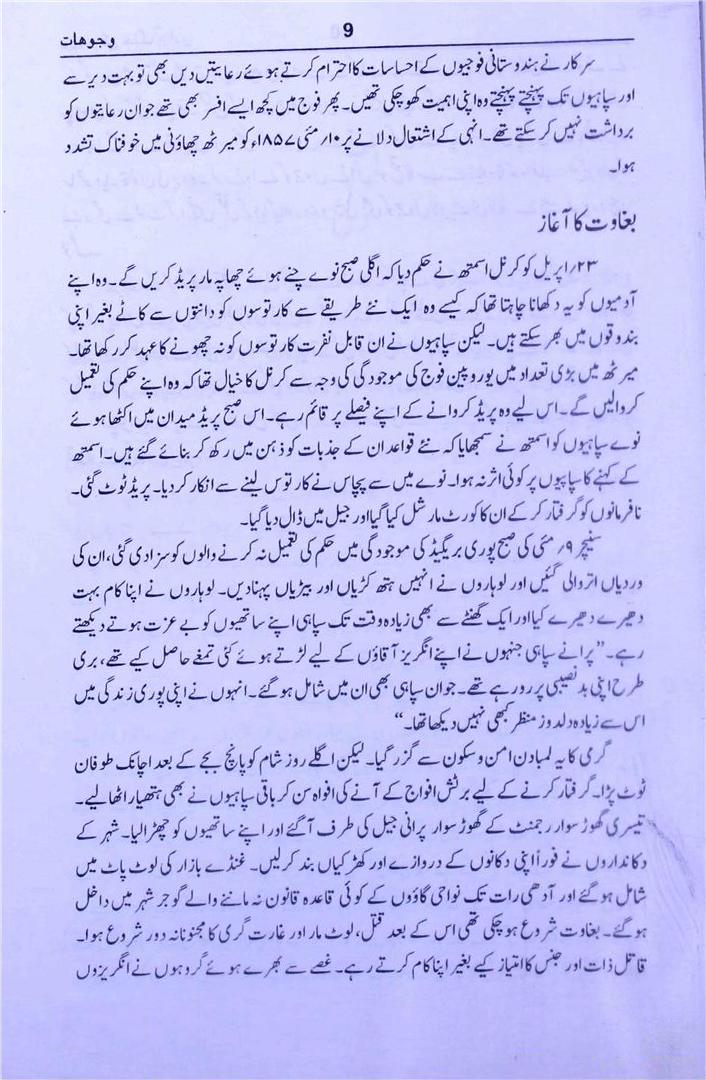 9
وجوہات
سرکار نے ہندوستانی فوجیوں کے احساسات کا احترام کرتے ہوئے رعایتیں دیں بھی تو بہت دیر سے
اور سپاہیوں تک پہنچتے پہنچتے وہ اپنی اہمیت کھو چکی تھیں۔ پھر فوج میں کچھ ایسے افسر بھی تھے جو ان رعایتوں کو
برداشت نہیں کر سکتے تھے۔ انہی کے اشتعال دلانے پر ۱۰؍ مئی ۱۸۵۷ء کو میرٹھ چھاؤنی میں خوفناک تشدد
ہوا۔
بغاوت کا آغاز
۲۳؍ اپریل کو کرنل اسمتھ نے حکم دیا کہ اگلی صبح نوے چنے ہوئے چھاپہ مار پریڈ کریں گے۔ وہ اپنے
آدمیوں کو یہ دکھانا چاہتا تھا کہ کیسے وہ ایک نئے طریقے سے کارتوسوں کو دانتوں سے کاٹے بغیر اپنی
بندوقوں میں بھر سکتے ہیں۔ لیکن سپاہیوں نے ان قابل نفرت کارتوسوں کو نہ چھونے کا عہد کر رکھا تھا۔
میرٹھ میں بڑی تعداد میں یوروپین فوج کی موجودگی کی وجہ سے کرنل کا خیال تھا کہ وہ اپنے حکم کی تعمیل
کروالیں گے۔ اس لیے وہ پریڈ کروانے کے اپنے فیصلے پر قائم رہے۔ اس صبح پریڈ میدان میں اکٹھا ہوئے
نوے سپاہیوں کو اسمتھ نے سمجھایا کہ نئے قواعد ان کے جذبات کو ذہن میں رکھ کر بنائے گئے ہیں۔ اسمتھ
کے کہنے کا سپاہیوں پر کوئی اثر نہ ہوا۔ نوے میں سے پچاس نے کارتوس لینے سے انکار کر دیا۔ پریڈ ٹوٹ گئی۔
نافرمانوں کو گرفتار کر کے ان کا کورٹ مارشل کیا گیا اور جیل میں ڈال دیا گیا۔
سنیچر ۹؍ مئی کی صبح پوری بریگیڈ کی موجودگی میں حکم کی تعمیل نہ کرنے والوں کو سزا دی گئی، ان کی
وردیاں اتروالی گئیں اور لوہاروں نے انہیں ہتھ کڑیاں اور بیڑیاں پہنا دیں۔ لوہاروں نے اپنا کام بہت
دھیرے دھیرے کیا اور ایک گھنٹے سے بھی زیادہ وقت تک سپاہی اپنے ساتھیوں کو بے عزت ہوتے دیکھتے
رہے۔ ”پرانے سپاہی جنہوں نے اپنے انگریز آقاؤں کے لیے لڑتے ہوئے کئی تمغے حاصل کیے تھے، بری
طرح اپنی بدنصیبی پر رو رہے تھے۔ جوان سپاہی بھی ان میں شامل ہو گئے۔ انہوں نے اپنی پوری زندگی میں
اس سے زیادہ دلدوز منظر کبھی نہیں دیکھا تھا۔“
گرمی کا یہ لمبا دن امن و سکون سے گزر گیا۔ لیکن اگلے روز شام کو پانچ بجے کے بعد اچانک طوفان
ٹوٹ پڑا۔ گرفتار کرنے کے لیے برٹش افواج کے آنے کی افواہ سن کر باقی سپاہیوں نے بھی ہتھیار اٹھا لیے۔
تیسری گھوڑ سوار رجمنٹ کے گھوڑ سوار پرانی جیل کی طرف آگئے اور اپنے ساتھیوں کو چھڑا لیا۔ شہر کے
دکانداروں نے فوراً اپنی دکانوں کے دروازے اور کھڑکیاں بند کر لیں۔ غنڈے بازار کی لوٹ پاٹ میں
شامل ہو گئے اور آدھی رات تک نواحی گاؤوں کے کوئی قاعدہ قانون نہ ماننے والے گوجر شہر میں داخل
ہو گئے۔ بغاوت شروع ہو چکی تھی اس کے بعد قتل، لوٹ مار اور غارت گری کا مجنونانہ دور شروع ہوا۔
قاتل ذات اور جنس کا امتیاز کیے بغیر اپنا کام کرتے رہے۔ غصے سے بھرے ہوئے گروہوں نے انگریزوں